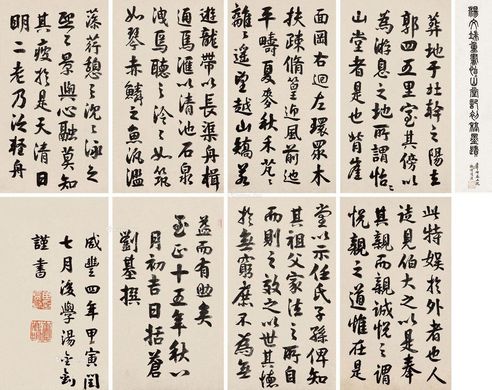 葬地于北幹之陽去
郭四五里室其傍以
為游息之所謂怡
山堂者是也背崖
面岡右迴左環眾木
扶疎脩篁迎風前迤
平疇夏麥秋禾芃〻
離〻遙望越山矯若
遊龍帶以長渠舟楫
通焉匯以清池石泉
洩焉聽之泠〻如筑
如琴赤鱗之魚
藻荇憩之沈〻詠之
熙〻景與心融莫知
其疲於是天清日
明二老乃泛輕舟
此特娛於外者也人
徒見伯大之以是奉
其親而親誠悅之謂
悅親之道惟在是
堂以示任氏子孫俾知
其祖父家法之所自
而則之效之以世其德
於無窮庶不為無
益而有助矣
至正十五年秋八
月初吉日括蒼
劉基撰
咸豐四年甲寅閏
七月後學湯金釗
謹書